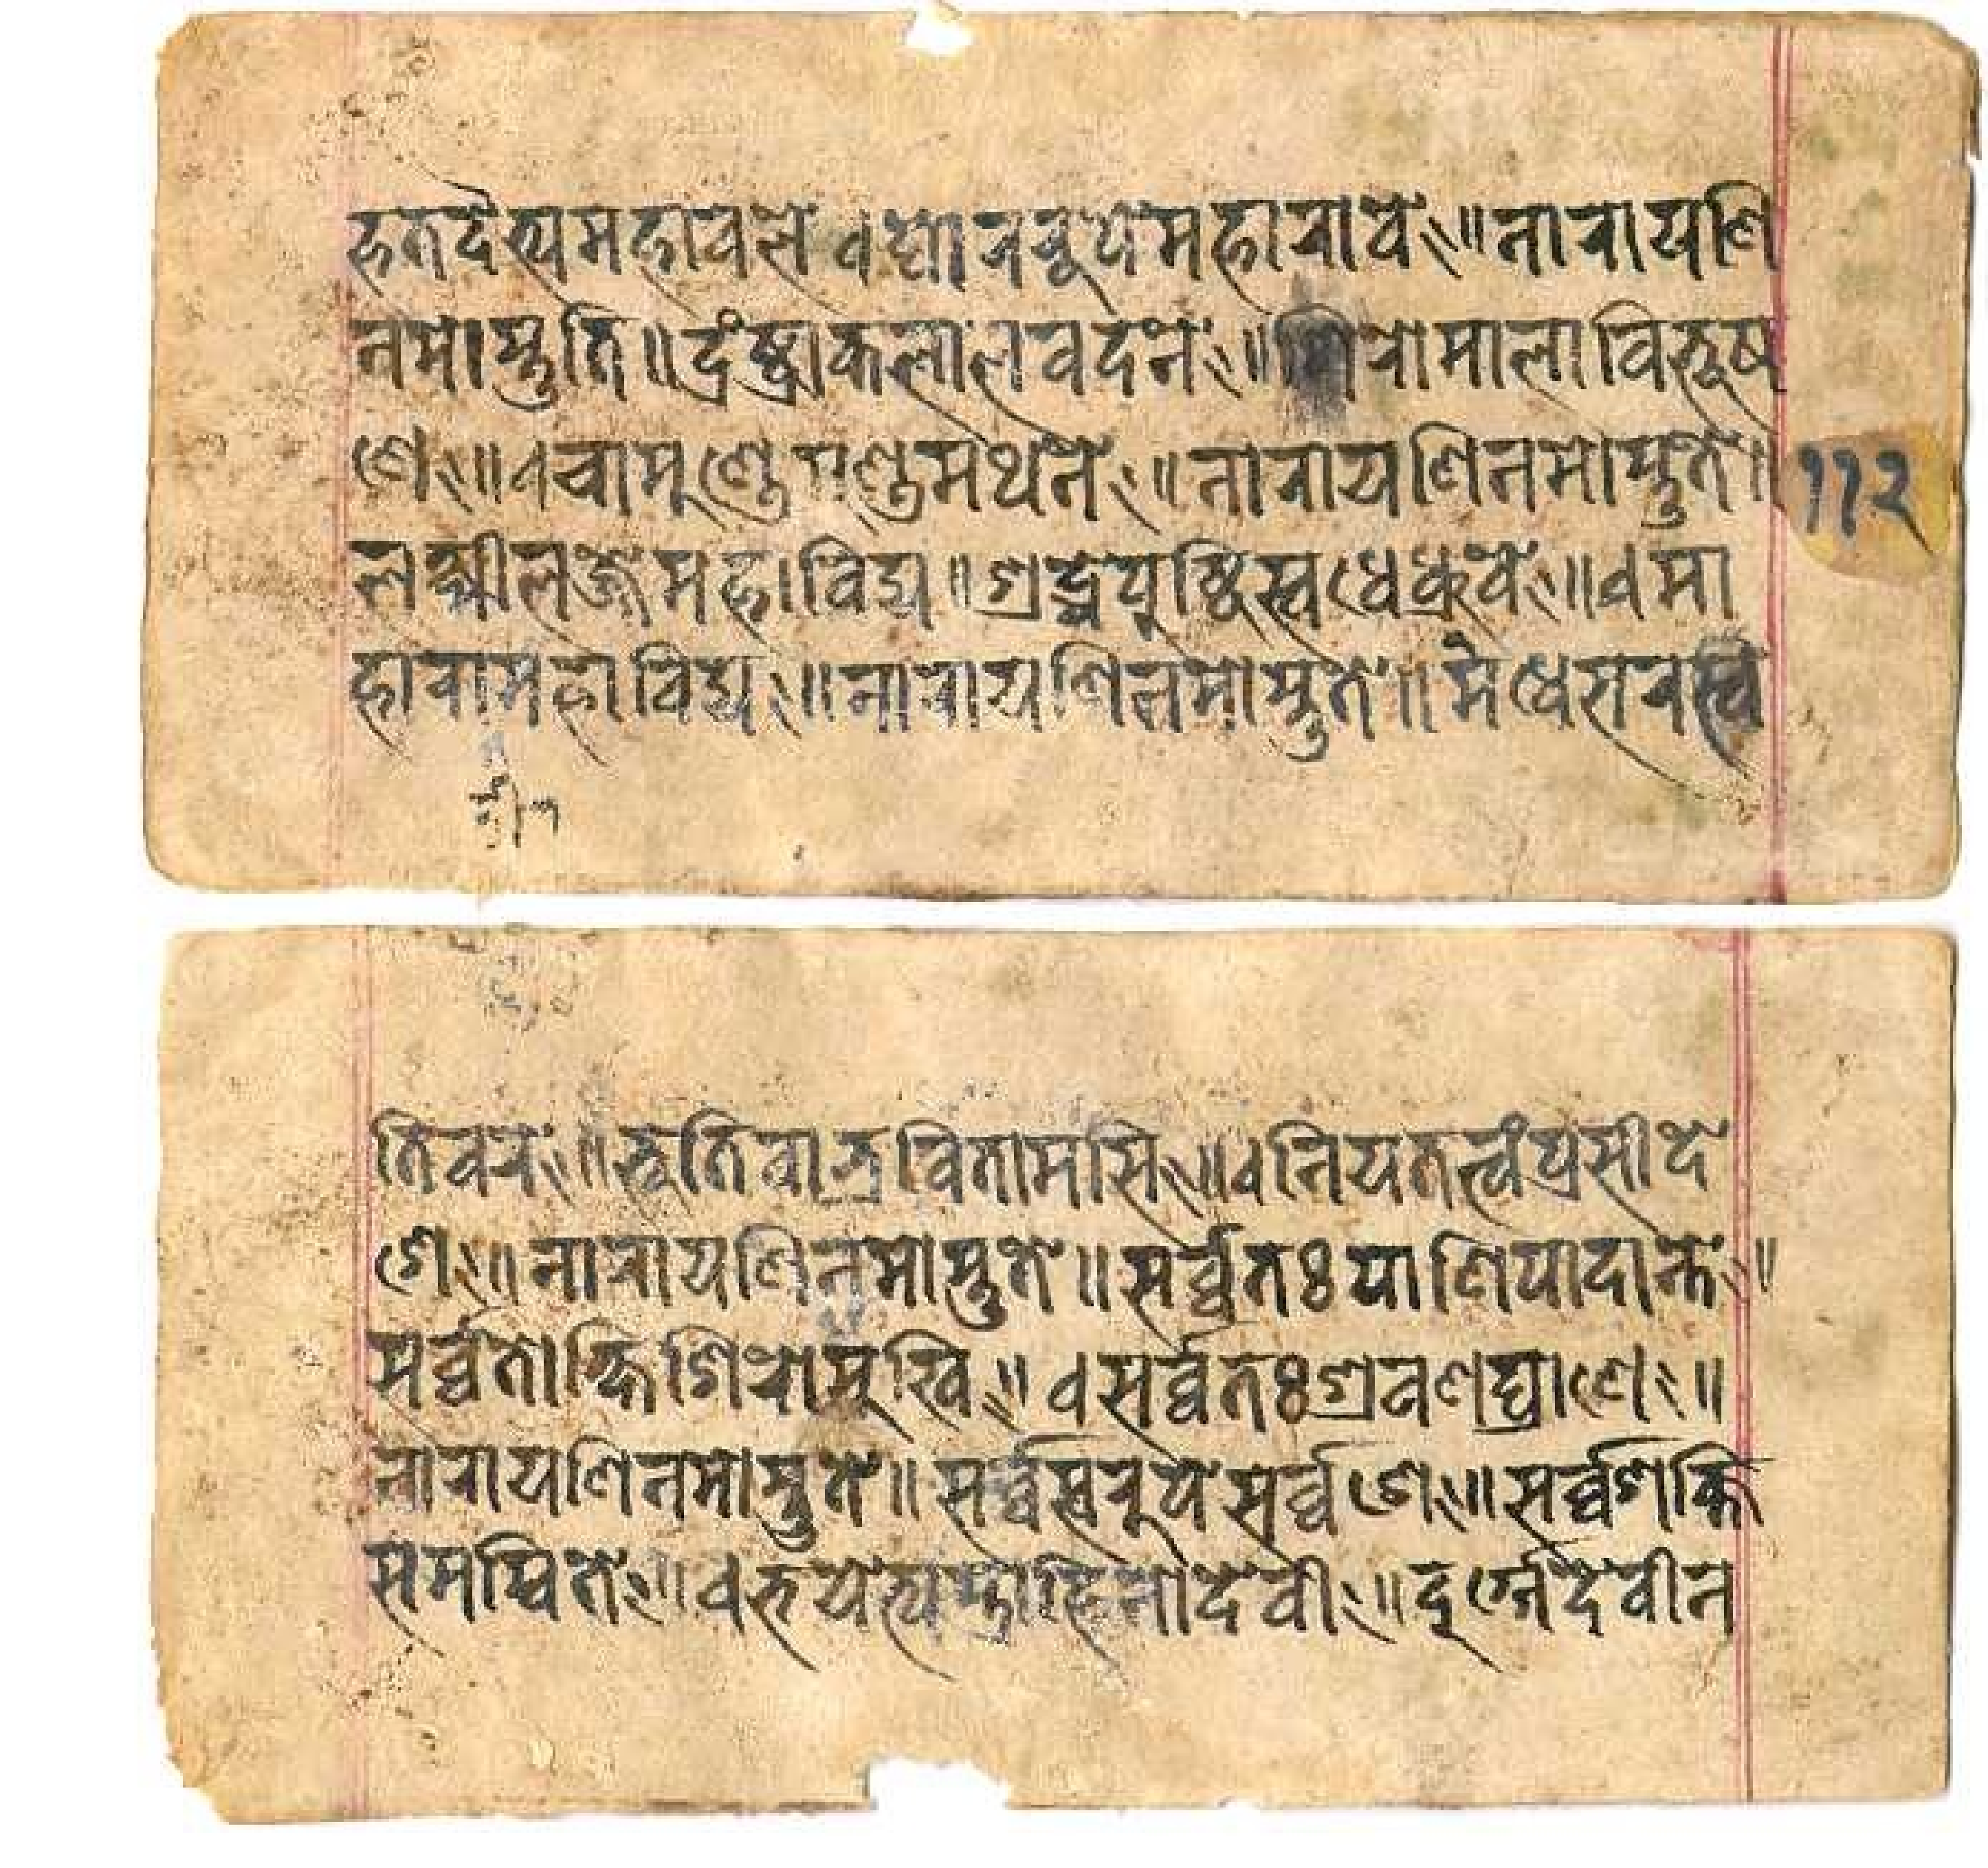 हतदैत्यमहावले वघोररूपेमहारावे२॥नारायणि
नमोस्तुति॥दंष्ट्राकलालवदने२॥रोमालाविभूष
णे२॥वचामूण्डेमुण्डमथने२॥नारायणिनमोस्तुते॥
लक्ष्मीलज्जेमहाविद्ये॥श्रद्धेपूष्टिस्वधेध्रुवे२॥वमा
हारामहाविद्ये२॥नारायणिनमोस्तुते॥मेधेसरस्व
११२
तिवरे२॥भूतिवाभ्रवितामसि२॥वनियतेत्वंप्रसीदे
शे२॥नारायणिनमोस्तुते॥सर्व्वतःपाणिपादान्ते२॥
सर्व्वतोक्षिशिरोमूखि२॥वसर्व्वतःश्रवणघ्राणे२॥
नारायणिनमोस्तुते॥सर्व्वस्वरूपेसर्व्वेशे२॥सर्व्वशक्ति
समन्विते२॥वभयेत्यस्त्राहिनोदेवी२॥दूर्गेदेवीन